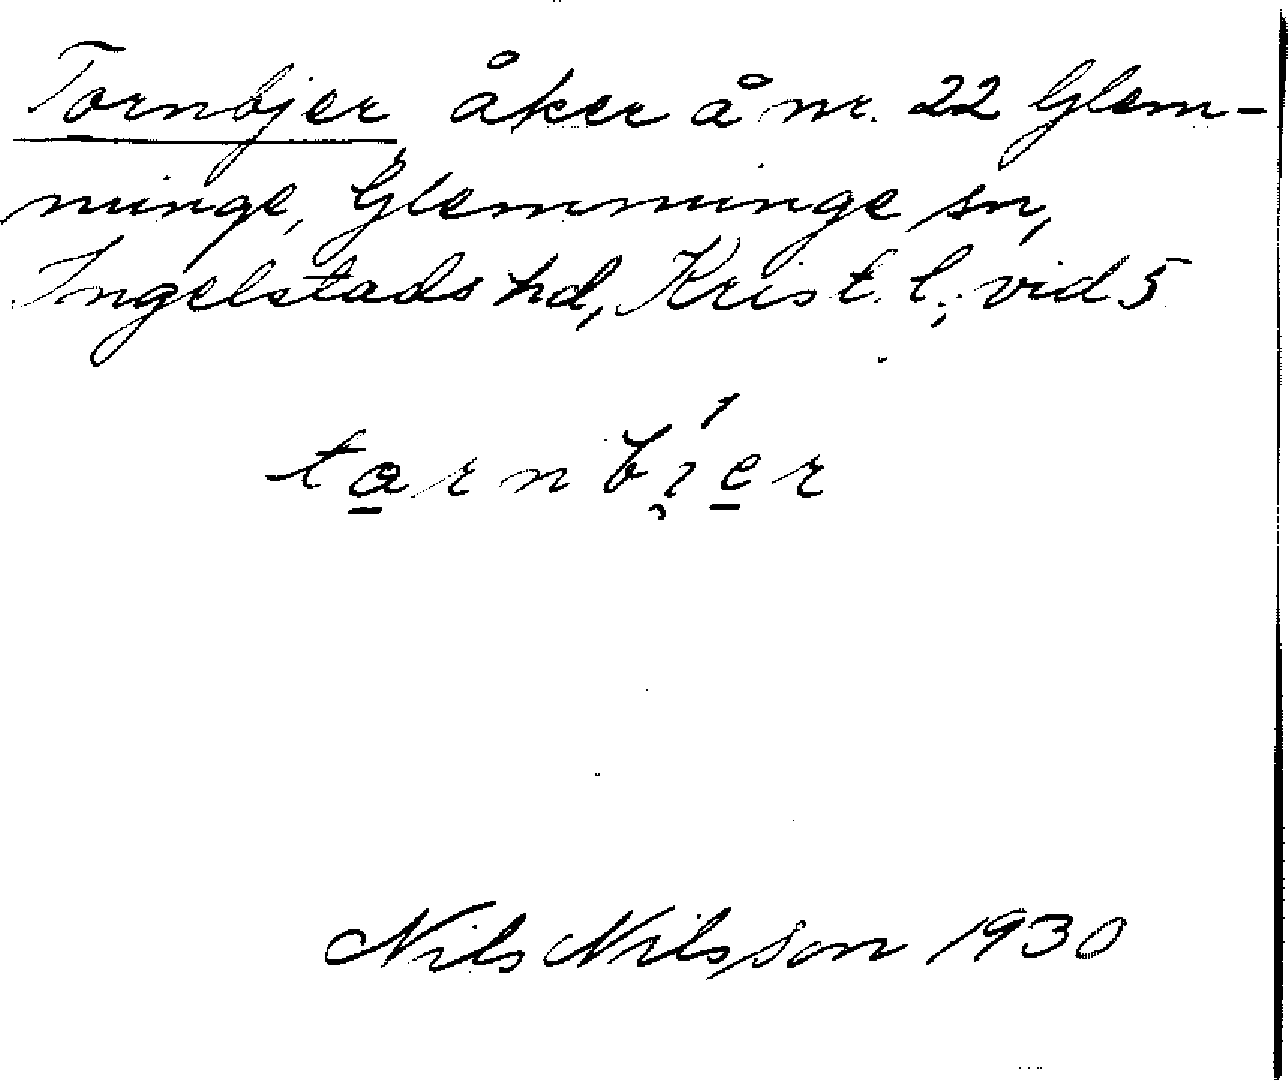 Tornbjer, åker å nr. 22 Glem-
minge, Glemminge sn,
Ingelstads hd, Krist. l.; vid 5
to̲rnbı̯́e̲r
Nils Nilsson 1930